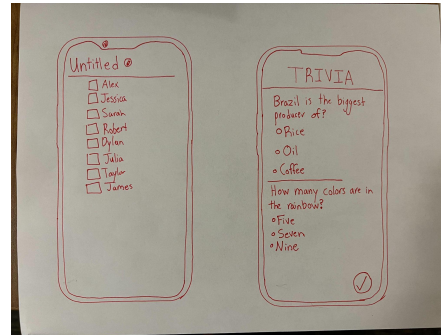 Untitled
Alex
Jessica
Sarah
Robert
Dylan
Julia
Taylor
James
TRIVIA
Brazil is the biggest
producer of?
Rice
Oil
Coffee
How many colors are in
the rainbow?
Five
Seven
Nine